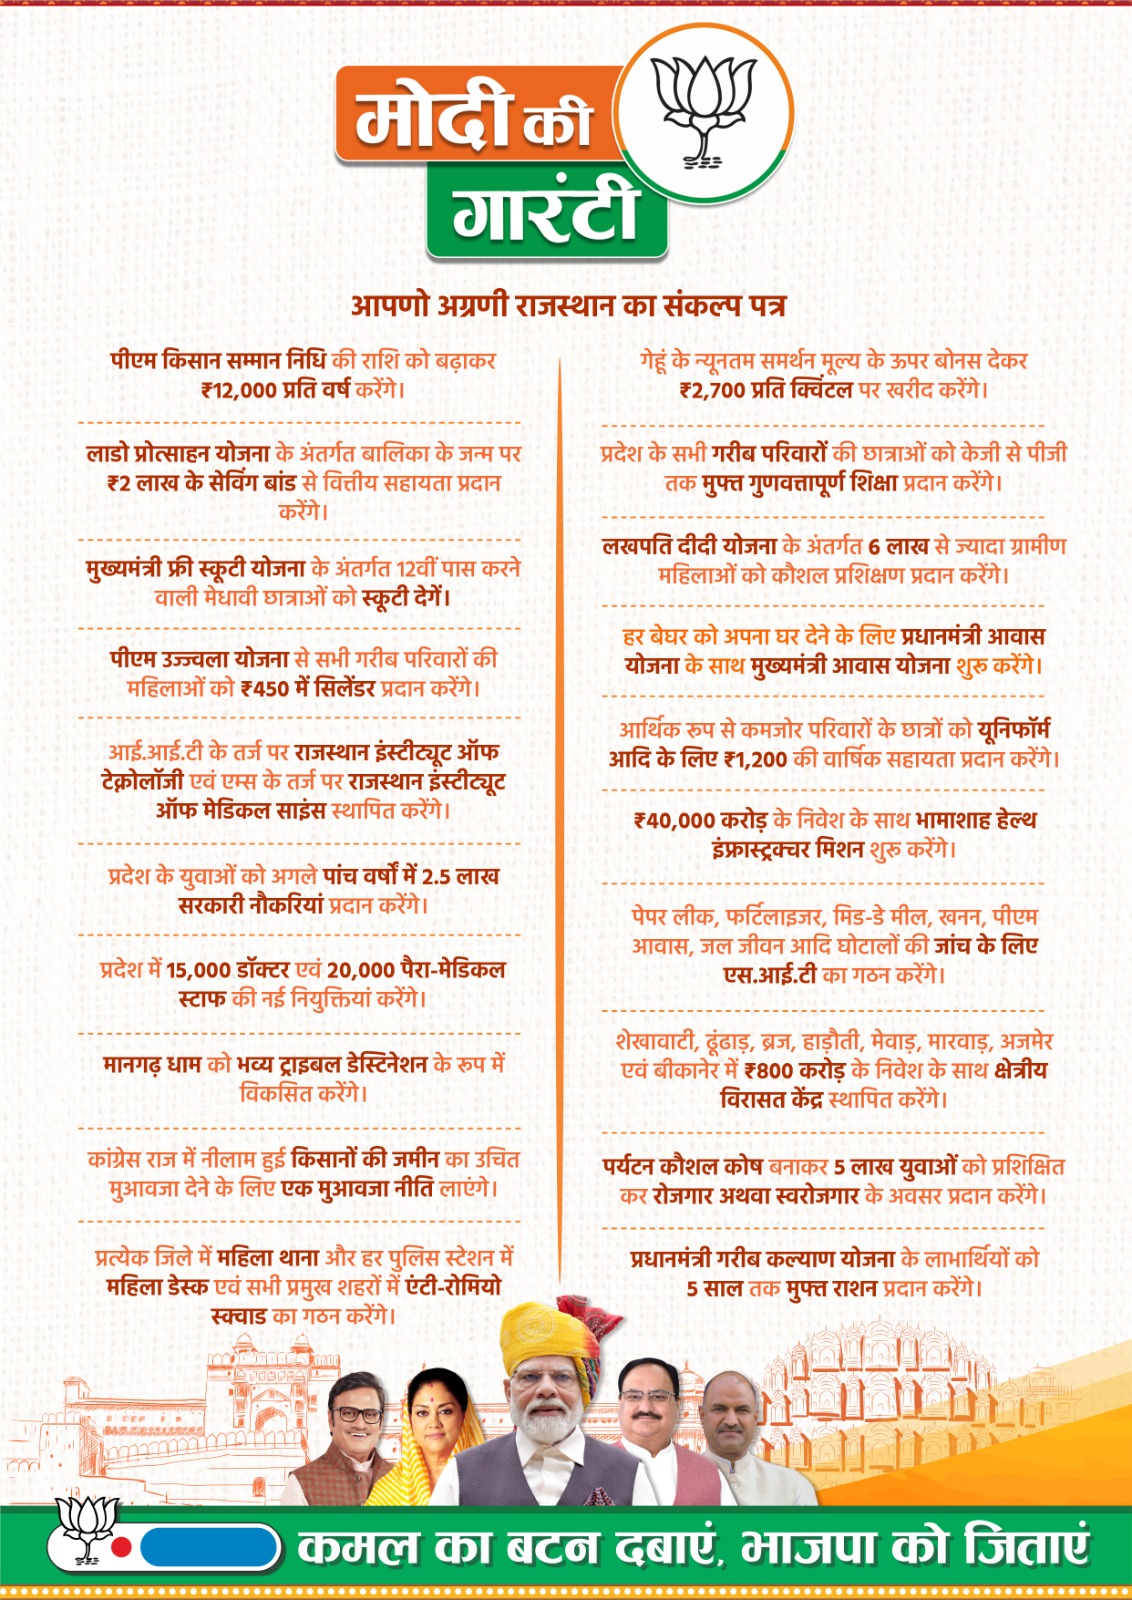 मोदी की
गारंटी
आपणो अग्रणी राजस्थान का संकल्प पत्र
पीएम किसान सम्मान निधि की राशि को बढ़ाकर
₹12,000 प्रति वर्ष करेंगे।
लाडो प्रोत्साहन योजना के अंतर्गत बालिका के जन्म पर
₹2 लाख के सेविंग बांड से वित्तीय सहायता प्रदान
करेंगे।
मुख्यमंत्री फ्री स्कूटी योजना के अंतर्गत 12वीं पास करने
वाली मेधावी छात्राओं को स्कूटी देगें।
पीएम उज्ज्वला योजना से सभी गरीब परिवारों की
महिलाओं को ₹450 में सिलेंडर प्रदान करेंगे।
आई.आई.टी के तर्ज पर राजस्थान इंस्टीट्यूट ऑफ
टेक्नोलॉजी एवं एम्स के तर्ज पर राजस्थान इंस्टीट्यूट
ऑफ मेडिकल साइंस स्थापित करेंगे।
प्रदेश के युवाओं को अगले पांच वर्षों में 2.5 लाख
सरकारी नौकरियां प्रदान करेंगे।
प्रदेश में 15,000 डॉक्टर एवं 20,000 पैरा-मेडिकल
स्टाफ की नई नियुक्तियां करेंगे।
मानगढ़ धाम को भव्य ट्राइबल डेस्टिनेशन के रूप में
विकसित करेंगे।
कांग्रेस राज में नीलाम हुई किसानों की जमीन का उचित
मुआवजा देने के लिए एक मुआवजा नीति लाएंगे।
प्रत्येक जिले में महिला थाना और हर पुलिस स्टेशन में
महिला डेस्क एवं सभी प्रमुख शहरों में एंटी-रोमियो
स्क्वाड का गठन करेंगे।
गेहूं के न्यूनतम समर्थन मूल्य के ऊपर बोनस देकर
₹2,700 प्रति क्विंटल पर खरीद करेंगे।
प्रदेश के सभी गरीब परिवारों की छात्राओं को केजी से पीजी
तक मुफ्त गुणवत्तापूर्ण शिक्षा प्रदान करेंगे।
लखपति दीदी योजना के अंतर्गत 6 लाख से ज्यादा ग्रामीण
महिलाओं को कौशल प्रशिक्षण प्रदान करेंगे।
हर बेघर को अपना घर देने के लिए प्रधानमंत्री आवास
योजना के साथ मुख्यमंत्री आवास योजना शुरू करेंगे।
आर्थिक रूप से कमजोर परिवारों के छात्रों को यूनिफॉर्म
आदि के लिए ₹1,200 की वार्षिक सहायता प्रदान करेंगे।
₹40,000 करोड़ के निवेश के साथ भामाशाह हेल्थ
इंफ्रास्ट्रक्चर मिशन शुरू करेंगे।
पेपर लीक, फर्टिलाइजर, मिड-डे मील, खनन, पीएम
आवास, जल जीवन आदि घोटालों की जांच के लिए
एस.आई.टी का गठन करेंगे।
शेखावाटी, ढूंढाड़, ब्रज, हाड़ौती, मेवाड़, मारवाड़, अजमेर
एवं बीकानेर में ₹800 करोड़ के निवेश के साथ क्षेत्रीय
विरासत केंद्र स्थापित करेंगे।
पर्यटन कौशल कोष बनाकर 5 लाख युवाओं को प्रशिक्षित
कर रोजगार अथवा स्वरोजगार के अवसर प्रदान करेंगे।
प्रधानमंत्री गरीब कल्याण योजना के लाभार्थियों को
5 साल तक मुफ्त राशन प्रदान करेंगे।
कमल का बटन दबाएं, भाजपा को जिताएं